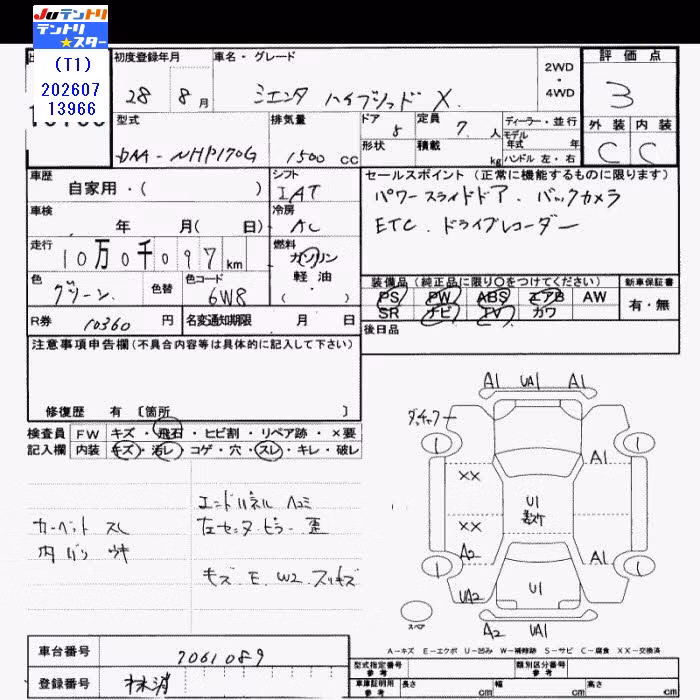 JUテントリ
テントリ★スター
(T1)
202607
13966
初度登録年月
28 8月
車名・グレード
シエンタ ハイブリッド X
2WD・4WD
評価点
3
外装 内装
C C
型式
DAA-NHP170G
排気量
1500 cc
ドア 5
形状
定員 7人
積載 kg
ディーラー・並行
モデル年式 年
ハンドル 左・右
車歴
自家用・( )
シフト
IAT
セールスポイント (正常に機能するものに限ります)
パワースライドドア . バックカメラ
ETC . ドライブレコーダー
車検
年 月( 日)
冷房
AC
走行
10万0千097km
燃料
ガソリン
軽・油
・( )
色
グリーン
色替
色コード
6W8
装備品 (純正品に限り○をつけてください)
PS PW ABS エアB AW
SR ナビ TV カワ
新車保証書
有・無
R券 10360円
名変通知期限 月 日
後日品
注意事項申告欄(不具合内容等は具体的に記入して下さい)
修復歴 有 〔箇所 〕
検査員記入欄
FW キズ・飛石・ヒビ割・リペア跡・×要
内装 キズ・汚レ・コゲ・穴・スレ・キレ・破レ
エンドパネル ヘコミ
カーペット スレ
左センターピラー 歪
内バリ
キズ.E.W2.スリキズ
A1 UA1 A1
A1
XX
U1
XX
A2
A1
UA2
U1
A2 UA1
スペア
A-キズ E-エクボ U-凹み W-補修跡 S-サビ C-腐食 XX-交換済
車台番号 7061089
登録番号 抹消
型式指定番号 参考
類別区分番号 参考
車庫証明用 参考
長さ cm 幅 cm 高さ cm